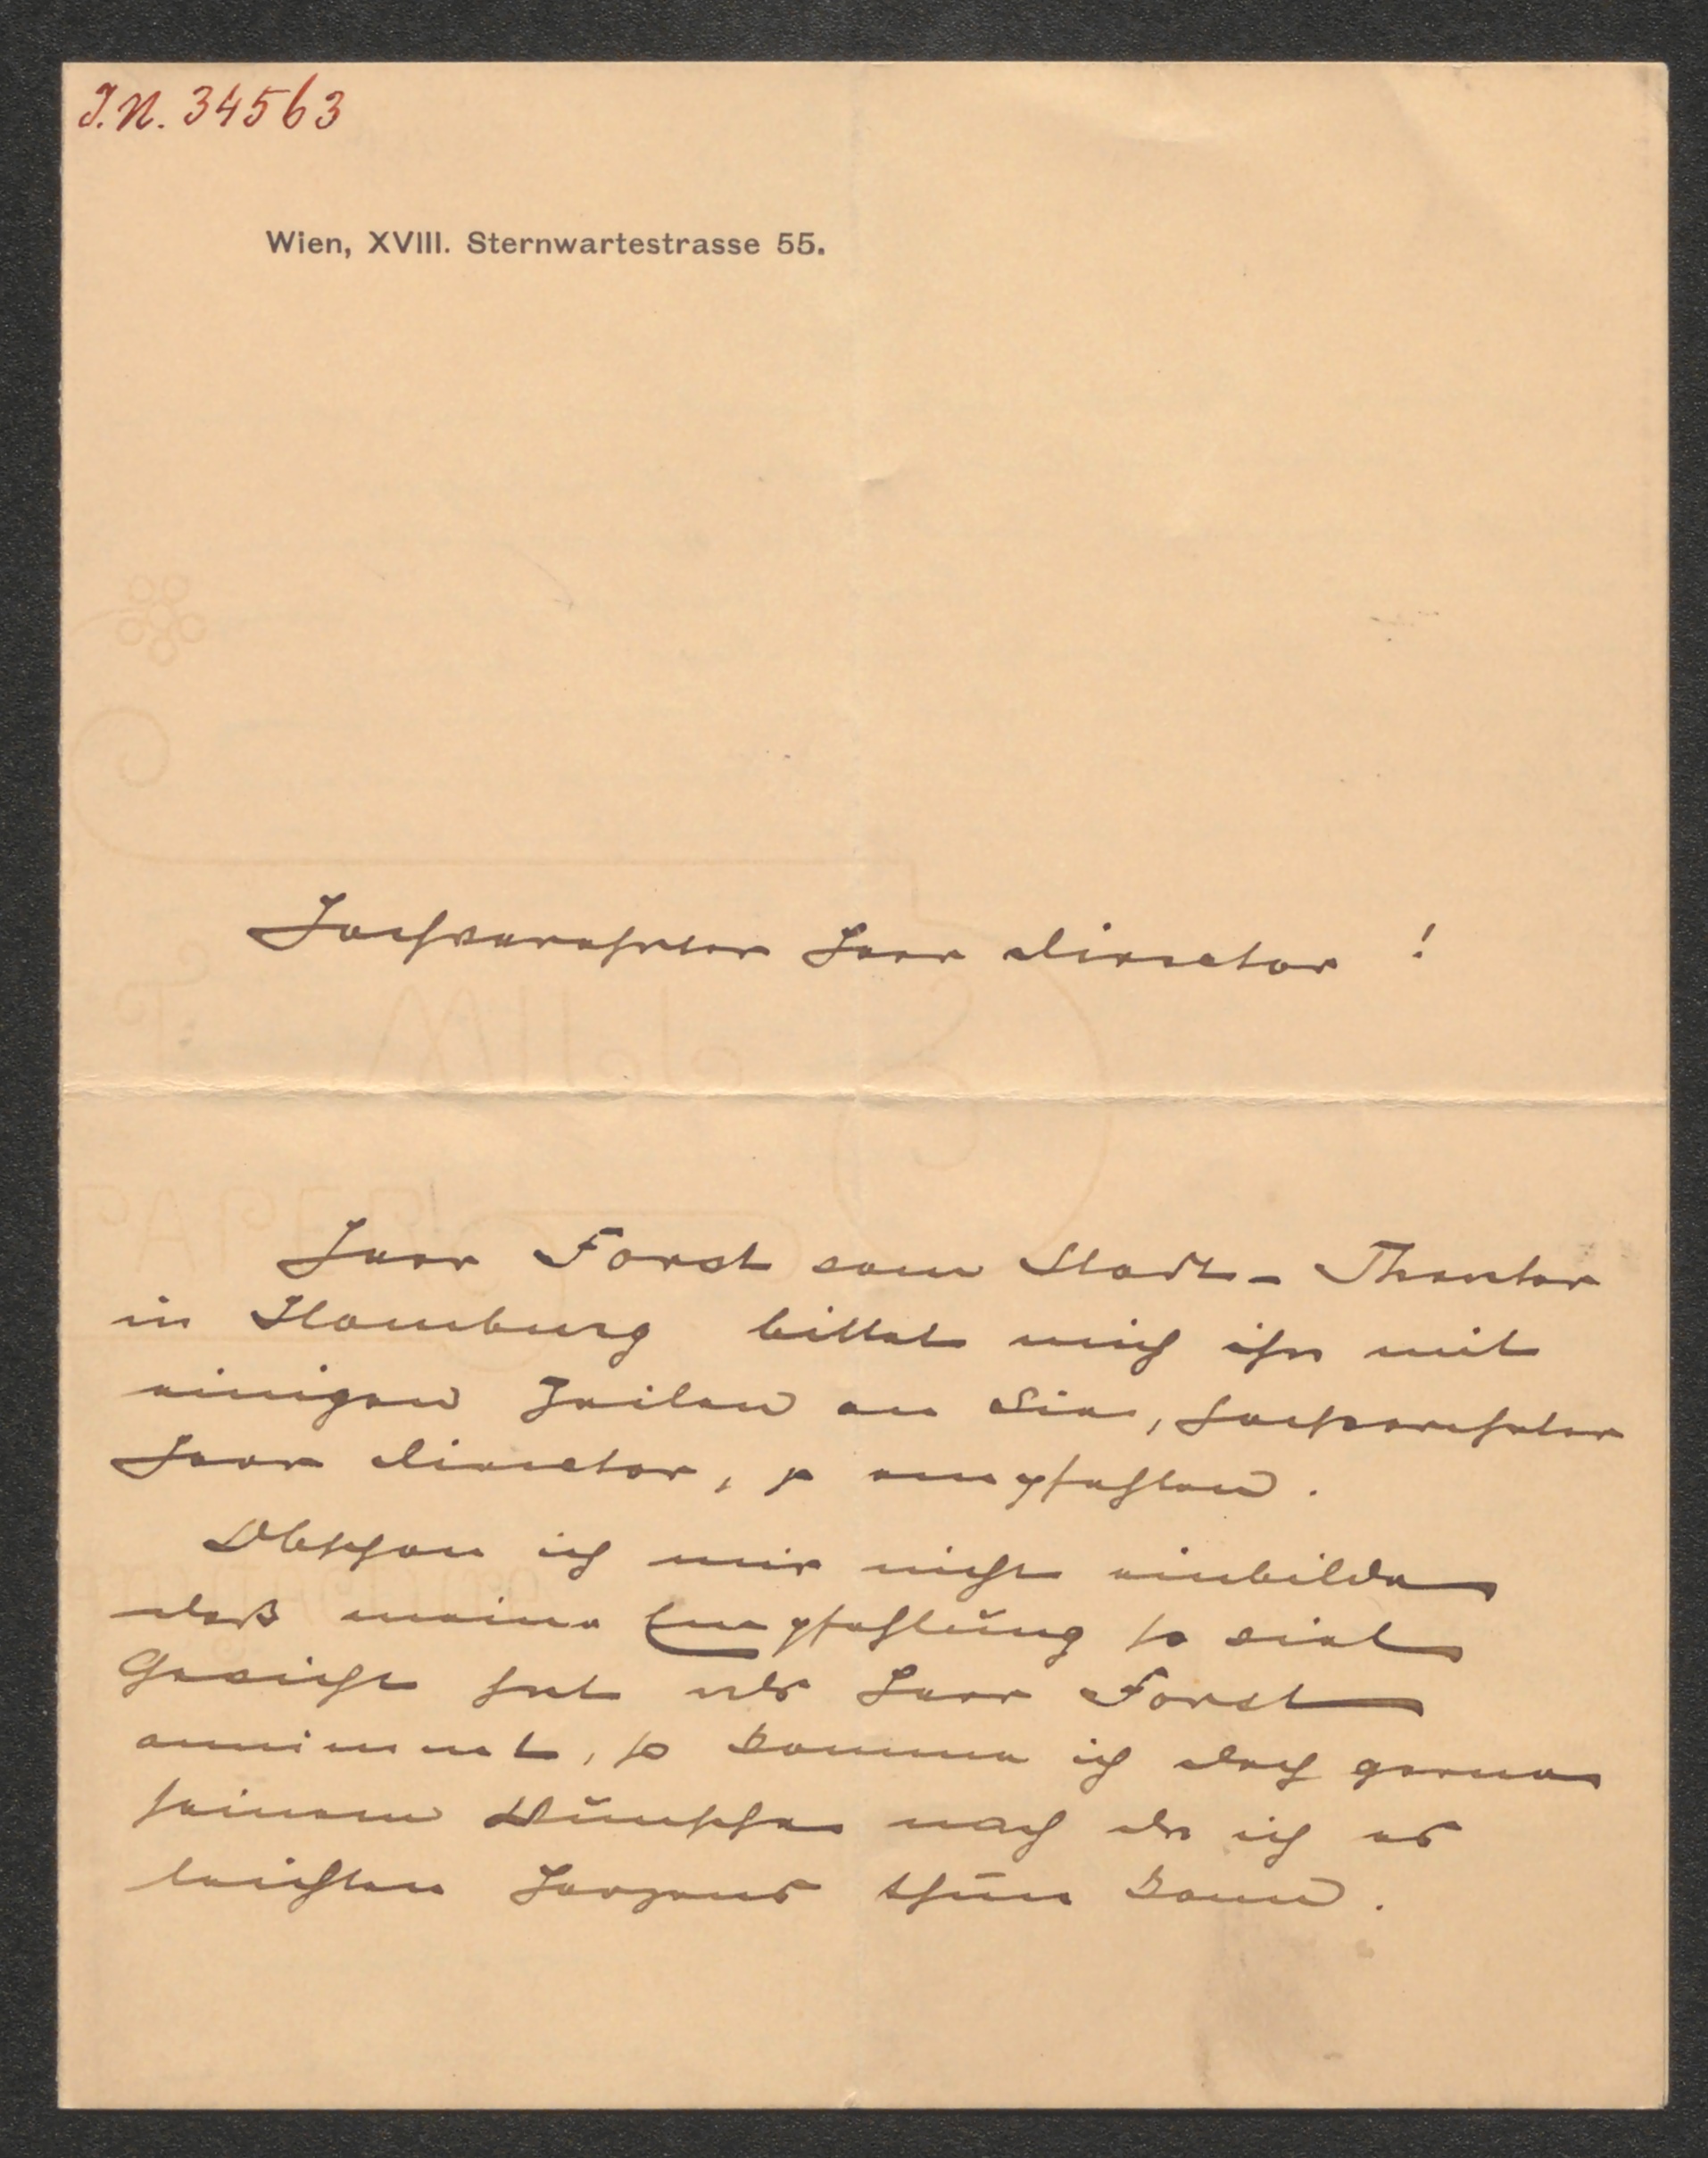 J.N. 34563
Wien, XVIII. Sternwartestrasse 55.
Hochverehrter Herr Director !
Herr Forst vom Stadt-Theater
in Hamburg bittet mich ihn mit
einigen Zeilen an Sie, hochverehrter
Herr Director, zu empfehlen.
Obschon ich mir nicht einbilde
daß meine Empfehlung so viel
Gewicht hat als Herr Forst
annimmt, so komme ich doch gerne
seinem Wunsche nach da ich es
leichten Herzens thun kann.